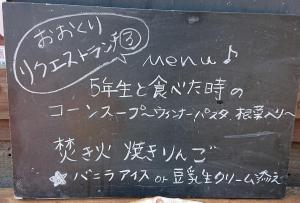 おおくり
リクエストランチ③
menu♪
5年生と食べた時の
コーンスープ〜ウィンナーパスタ 根菜入り〜
焚き火 焼きりんご
★バニラアイス or 豆乳生クリーム添え